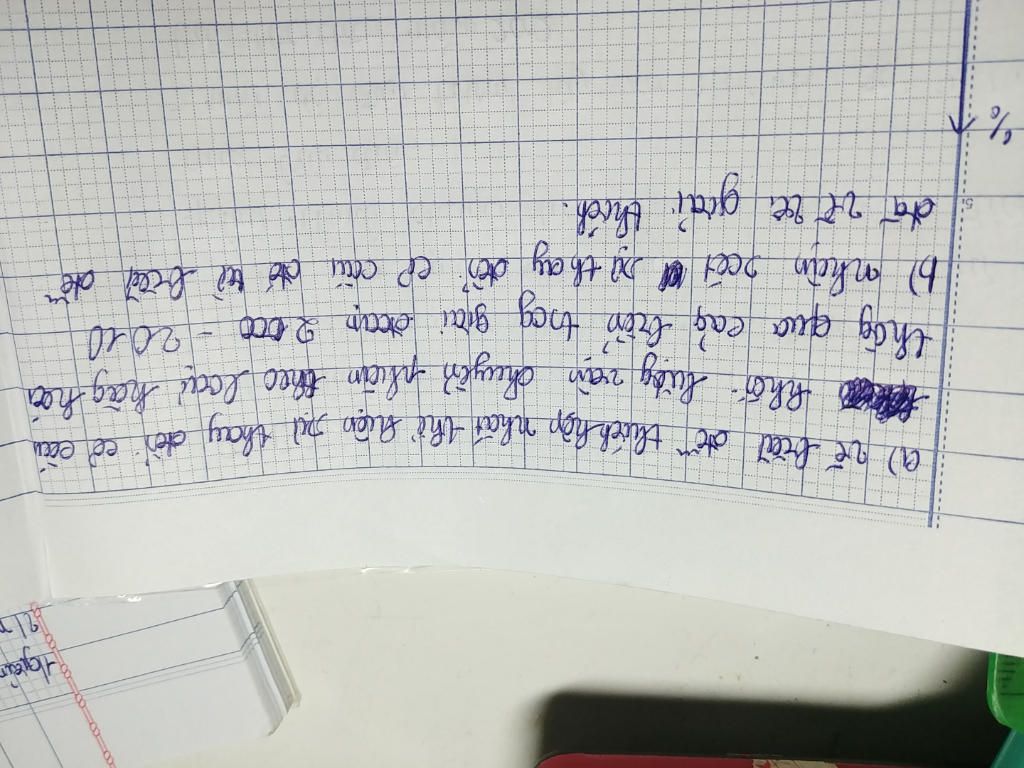 a) vẽ biểu đồ thích hợp nhất thể hiện sự thay đổi cơ cấu
khối lượg vận chuyển phân theo loại hàg hoá
thôg qua cảg biển trog giai đoạn 2000 - 2010
b) nhận xét sự thay đổi cơ cấu đó từ biểu đồ
đã vẽ và giải thích.
%
5